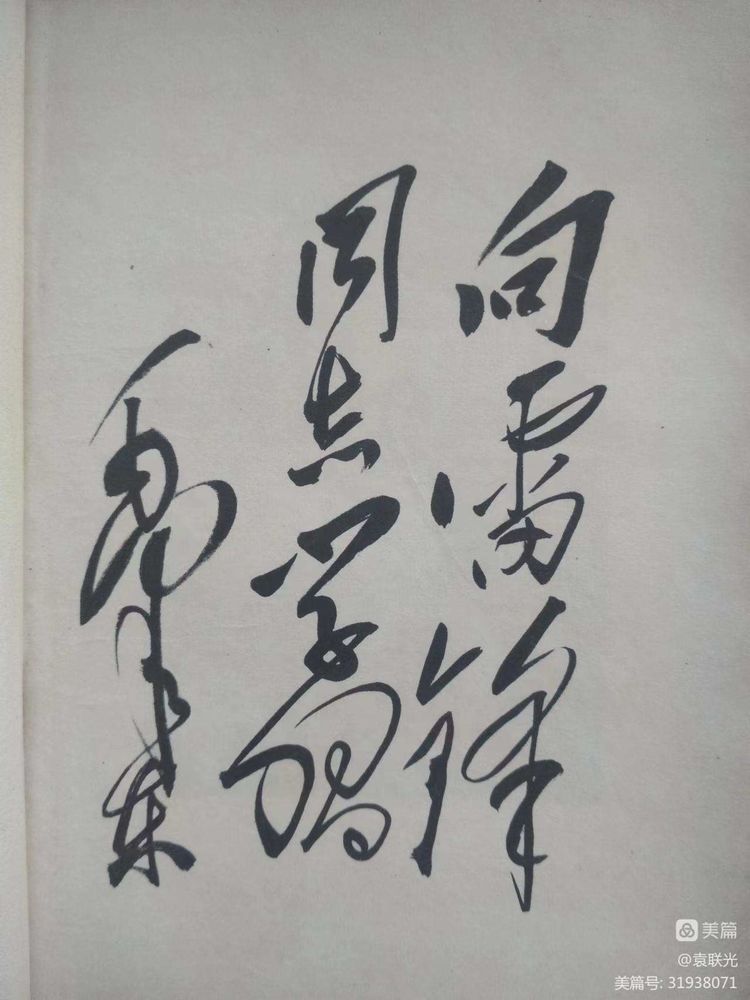 向雷锋
同志学习
毛泽东
美篇
@袁联光
美篇号: 31938071